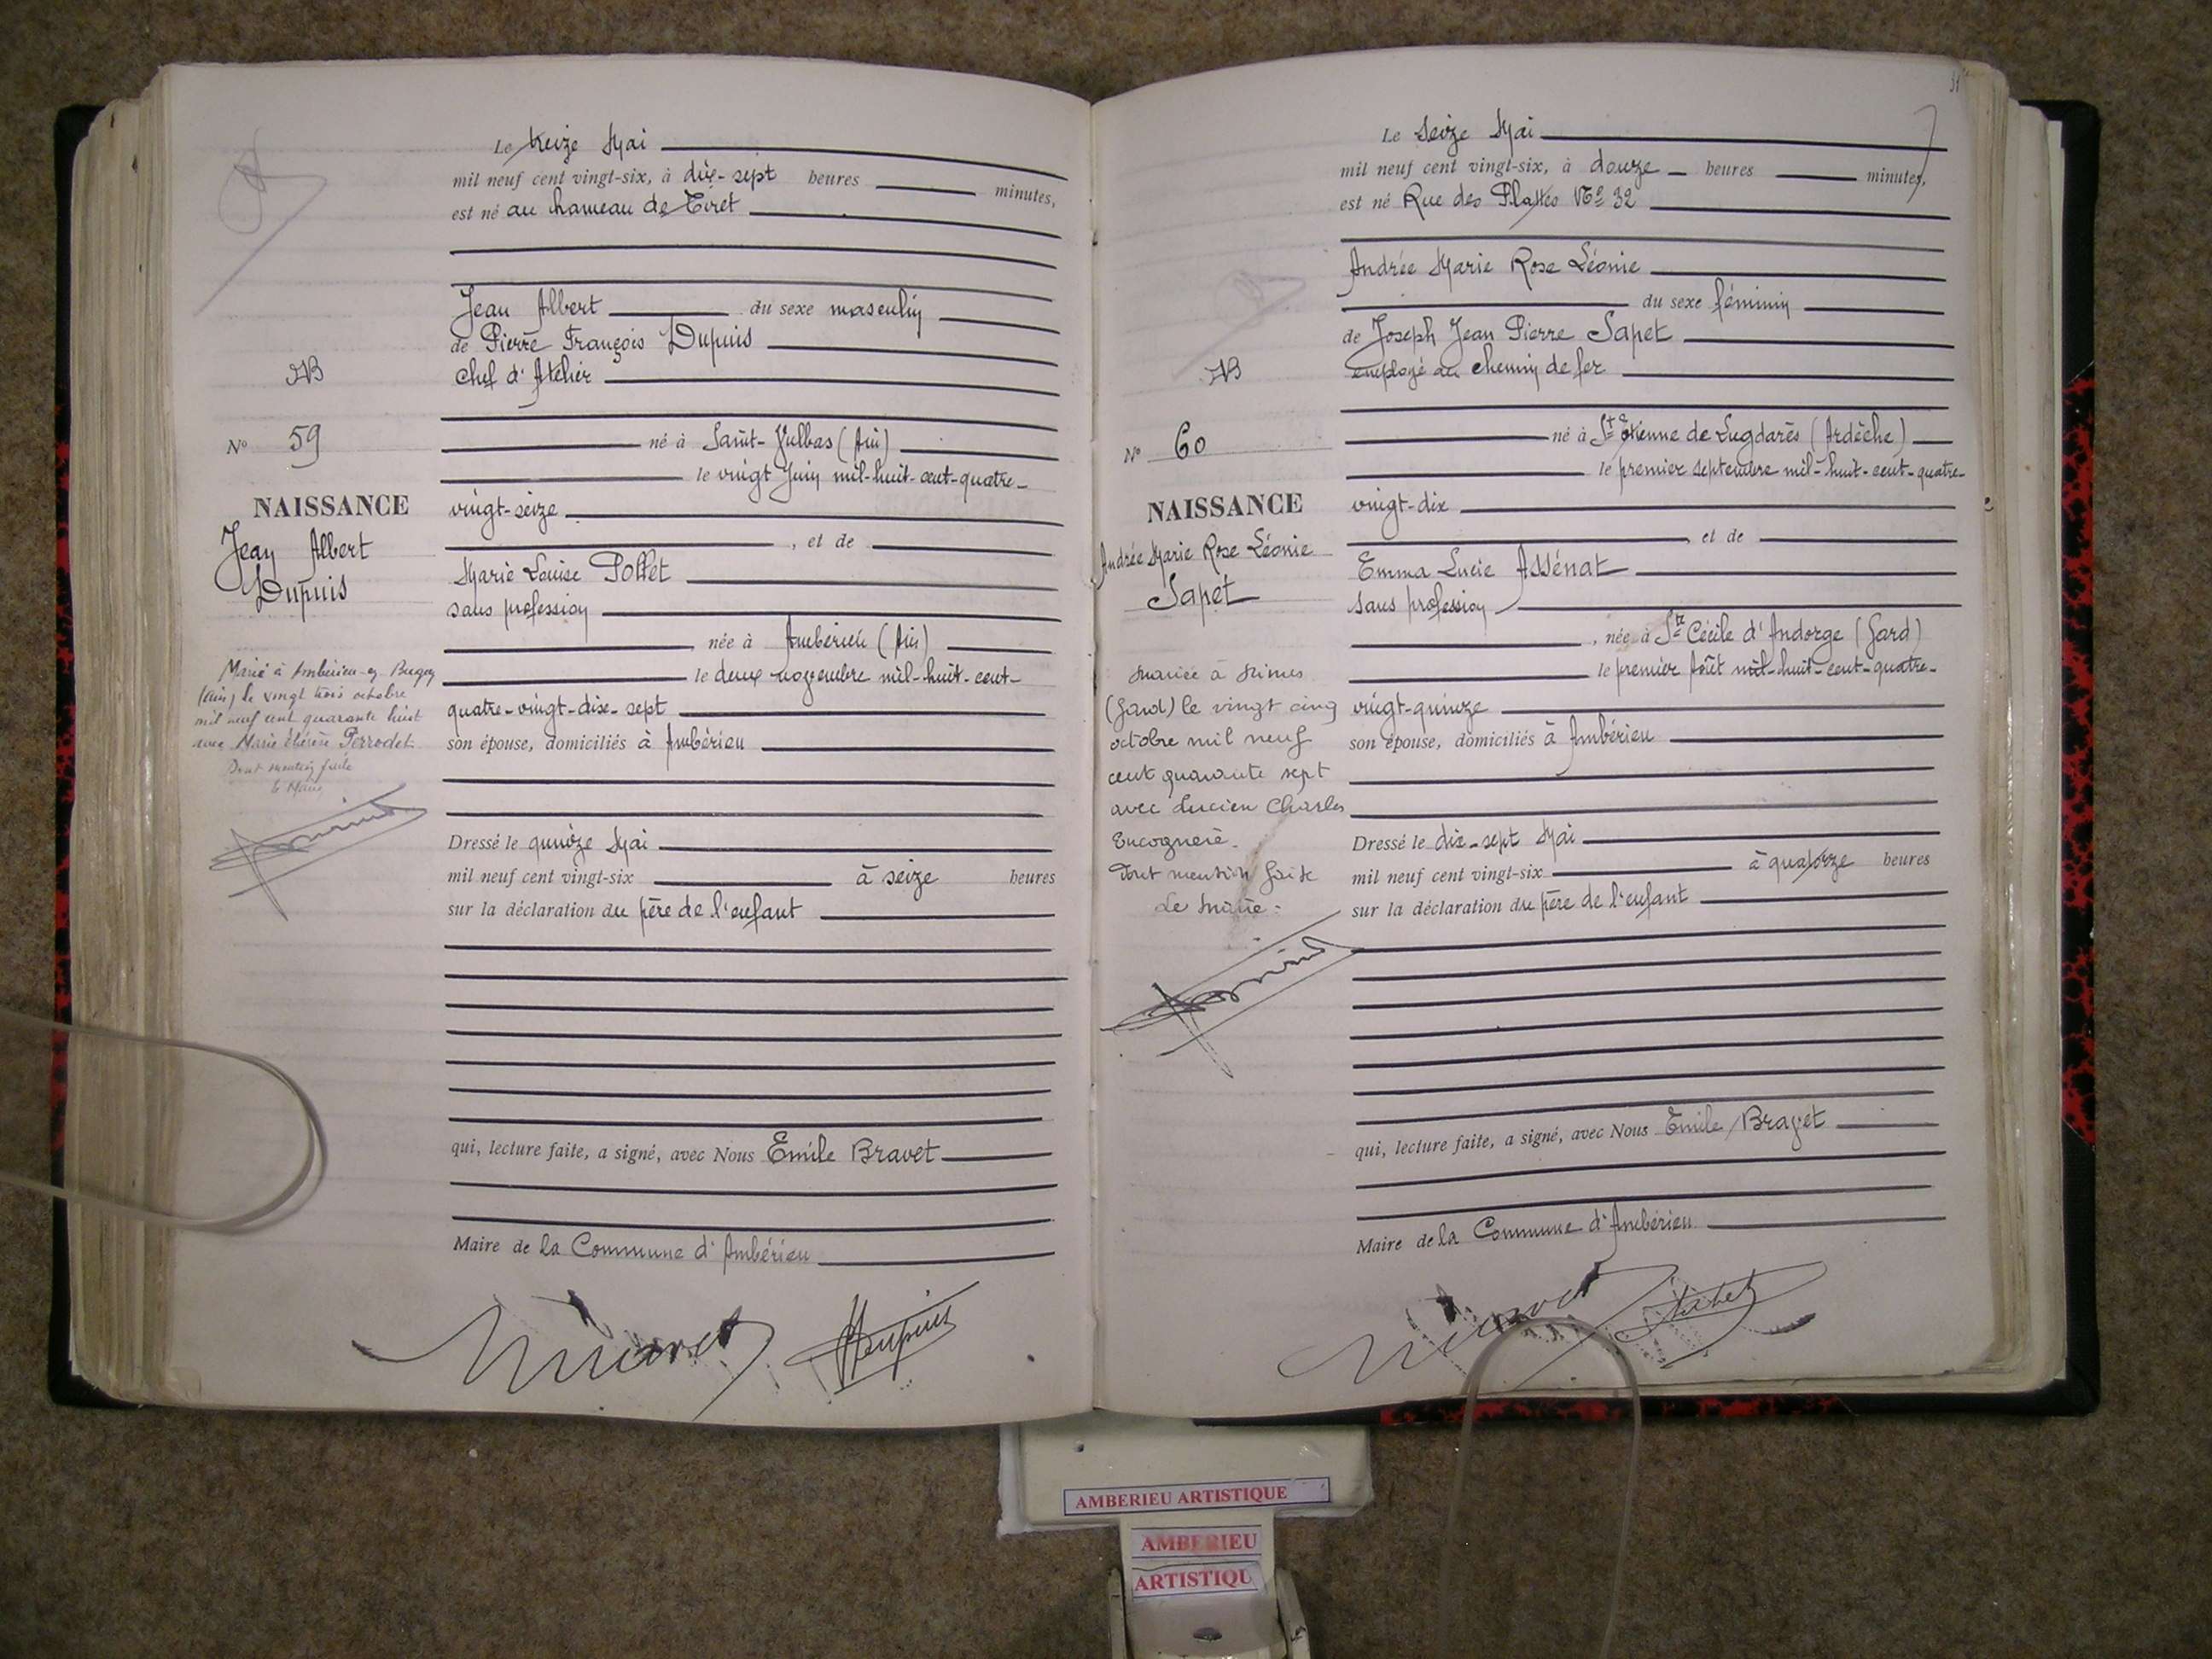 Le treize Mai
mil neuf cent vingt-six, à dix-sept heures minutes,
est né au hameau de Tiret
Jean Albert du sexe masculin
de Pierre François Dupuis
chef d'Atelier
né à Saint-Vulbas (Ain)
le vingt Juin mil-huit-cent-quatre-
vingt-seize
, et de
Marie Louise Pollet
sans profession
, née à Ambérieu (Ain)
le deux novembre mil-huit-cent-
quatre-vingt-dix-sept
son épouse, domiciliés à Ambérieu
Dressé le quinze Mai
mil neuf cent vingt-six à seize heures
sur la déclaration du père de l'enfant
qui, lecture faite, a signé, avec Nous Emile Bravet
Maire de la Commune d'Ambérieu
Dupuis
N° 59
NAISSANCE
Jean Albert
Dupuis
Marié à Ambérieu-en-Bugey
(Ain) le vingt trois octobre
mil neuf cent quarante huit
avec Marie Thérèse Perrodet
Dont mention faite
le Maire
Le seize Mai
mil neuf cent vingt-six, à douze heures minutes,
est né Rue des Plattes N° 32
Andrée Marie Rose Léonie
du sexe féminin
de Joseph Jean Pierre Sapet
employé au chemin de fer
né à St Etienne de Lugdarès (Ardèche)
le premier septembre mil-huit-cent-quatre-
vingt-dix
, et de
Emma Lucie Assénat
sans profession
, née à Ste Cécile d'Andorge (Gard)
le premier Août mil-huit-cent-quatre-
vingt-quinze
son épouse, domiciliés à Ambérieu
Dressé le dix-sept Mai
mil neuf cent vingt-six à quatorze heures
sur la déclaration du père de l'enfant
qui, lecture faite, a signé, avec Nous Emile Bravet
Maire de la Commune d'Ambérieu
Sapet
N° 60
NAISSANCE
Andrée Marie Rose Léonie
Sapet
Mariée à Nîmes
(Gard) le vingt cinq
octobre mil neuf
cent quarante sept
avec Lucien Charles
Encognère.
Dont mention faite
Le Maire:
AMBERIEU ARTISTIQUE
AMBERIEU
ARTISTIQU